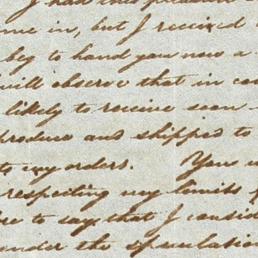 I had this pleasure
me in, but I received
beg to hand you now a
will observe that in con
likely to receive soon
produce and shipped to
to my orders. Your
respecting my limits f
ire to say that I consid
under the speculation